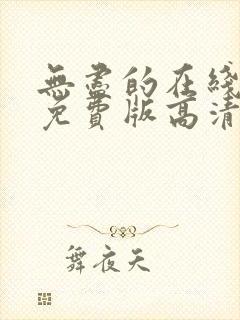 無盡的在綫
免費版高清
舞夜天